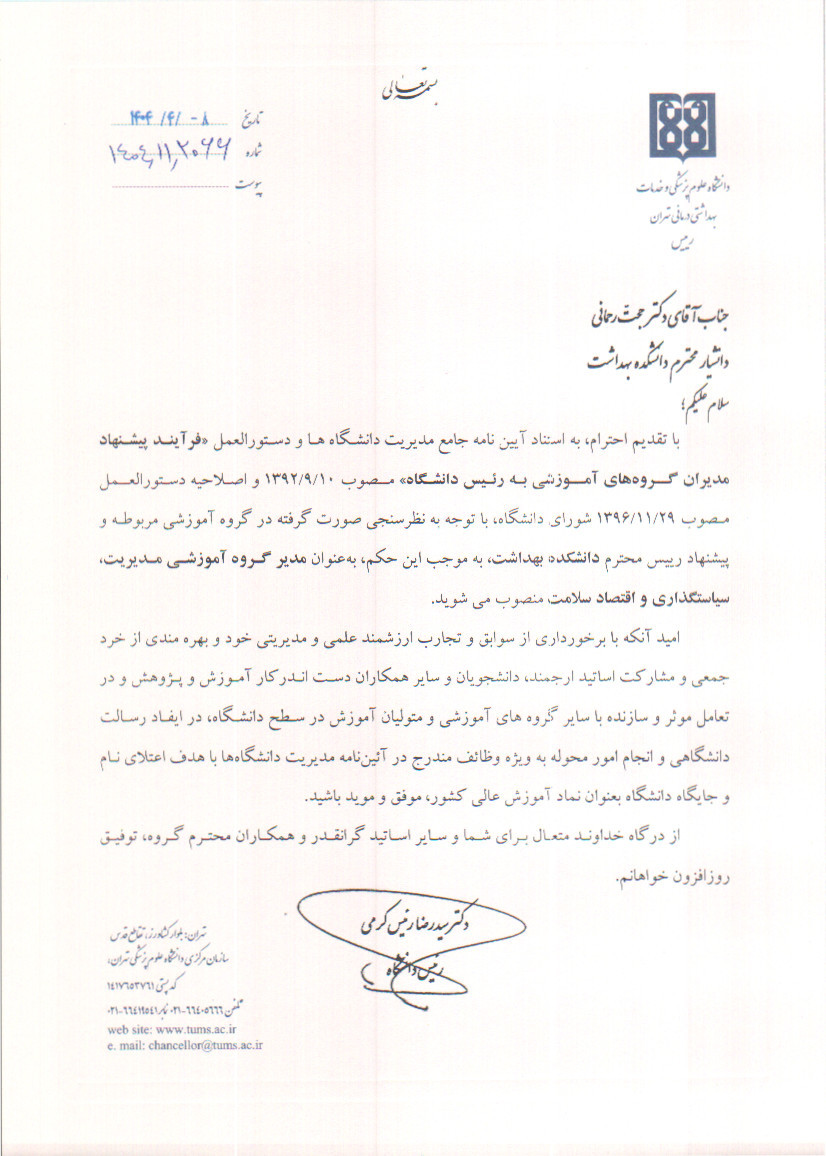 بسمه تعالی
تاریخ ۱۴۰۴/۴/۰۸
شماره ۱۴۰۴,۱۱,۲۰۶۶
پیوست
دانشگاه علوم پزشکی و خدمات
بهداشتی درمانی تهران
رییس
جناب آقای دکتر حجت رحمانی
دانشیار محترم دانشکده بهداشت
سلام علیکم؛
با تقدیم احترام، به استناد آیین نامه جامع مدیریت دانشگاه ها و دستورالعمل «فرآیند پیشنهاد
مدیران گروه‌های آموزشی به رئیس دانشگاه» مصوب ۱۳۹۲/۹/۱۰ و اصلاحیه دستورالعمل
مصوب ۱۳۹۶/۱۱/۲۹ شورای دانشگاه، با توجه به نظرسنجی صورت گرفته در گروه آموزشی مربوطه و
پیشنهاد رییس محترم دانشکده بهداشت، به موجب این حکم، به‌عنوان مدیر گروه آموزشی مدیریت،
سیاستگذاری و اقتصاد سلامت منصوب می شوید.
امید آنکه با برخورداری از سوابق و تجارب ارزشمند علمی و مدیریتی خود و بهره مندی از خرد
جمعی و مشارکت اساتید ارجمند، دانشجویان و سایر همکاران دست اندرکار آموزش و پژوهش و در
تعامل موثر و سازنده با سایر گروه های آموزشی و متولیان آموزش در سطح دانشگاه، در ایفاد رسالت
دانشگاهی و انجام امور محوله به ویژه وظائف مندرج در آئین‌نامه مدیریت دانشگاه‌ها با هدف اعتلای نام
و جایگاه دانشگاه بعنوان نماد آموزش عالی کشور، موفق و موید باشید.
از درگاه خداوند متعال برای شما و سایر اساتید گرانقدر و همکاران محترم گروه، توفیق
روزافزون خواهانم.
دکتر سید رضا رئیس کرمی
رئیس دانشگاه
تهران: بلوار کشاورز، تقاطع قدس
سازمان مرکزی دانشگاه علوم پزشکی تهران،
کد پستی ۱۴۱۷۶۵۳۷۶۱
تلفن ۶۶۴۰۵۶۶۶-۰۲۱ نمابر ۶۶۴۱۹۵۴۱-۰۲۱
web site: www.tums.ac.ir
e. mail: chancellor@tums.ac.ir